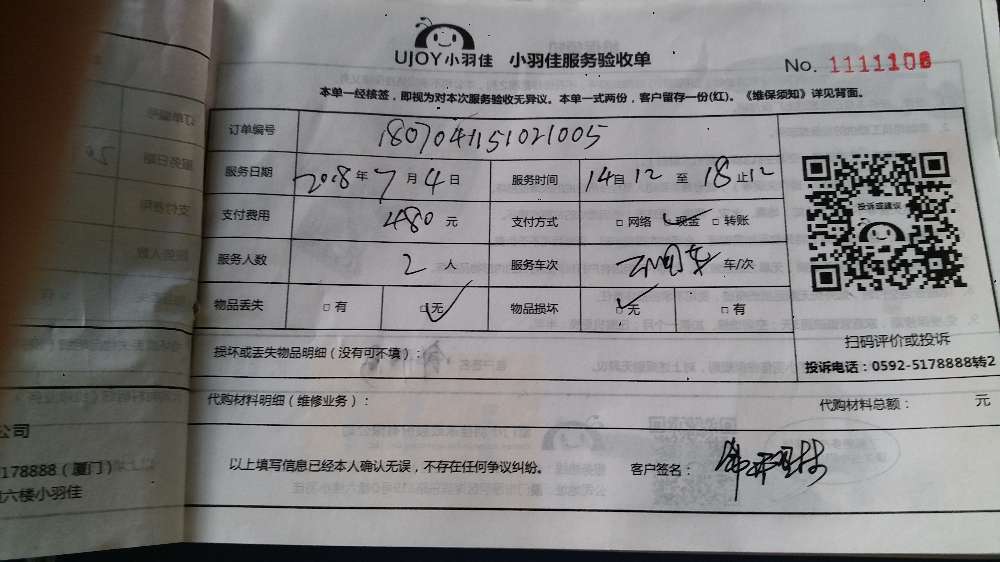 UJOY小羽佳 小羽佳服务验收单
No. 1111108
本单一经核签，即视为对本次服务验收无异议。本单一式两份，客户留存一份(红)。《维保须知》详见背面。
订单编号 1807041151021005
服务日期 2018年7月4日 服务时间 14自12至18止12
支付费用 480元 支付方式 □网络 □现金 □转账
服务人数 2人 服务车次 车/次
物品丢失 □有 □无 物品损坏 □无 □有
投诉或建议
扫码评价或投诉
投诉电话：0592-5178888转2
损坏或丢失物品明细（没有可不填）：
代购材料明细（维修业务）： 代购材料总额： 元
以上填写信息已经本人确认无误，不存在任何争议纠纷。 客户签名：
公司
178888（厦门）
六楼小羽佳